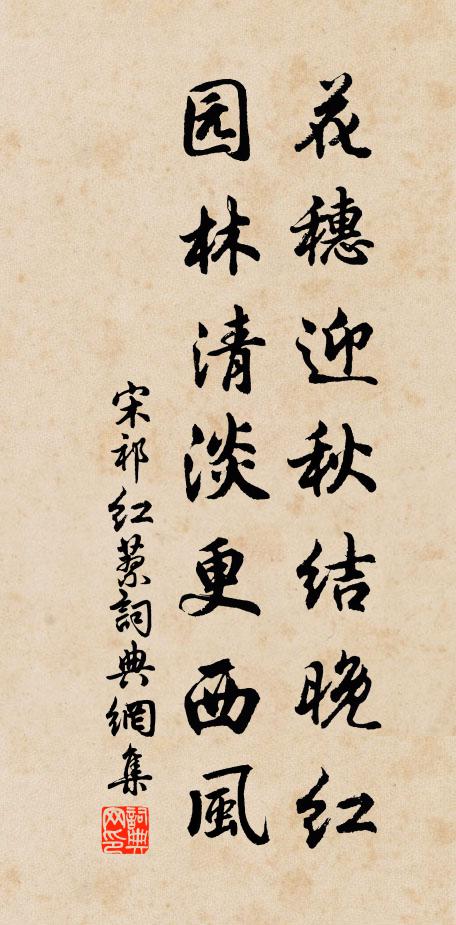 花穗迎秋结晚红
园林清淡更西風
宋祁红蓼詞典網集
詞典网印